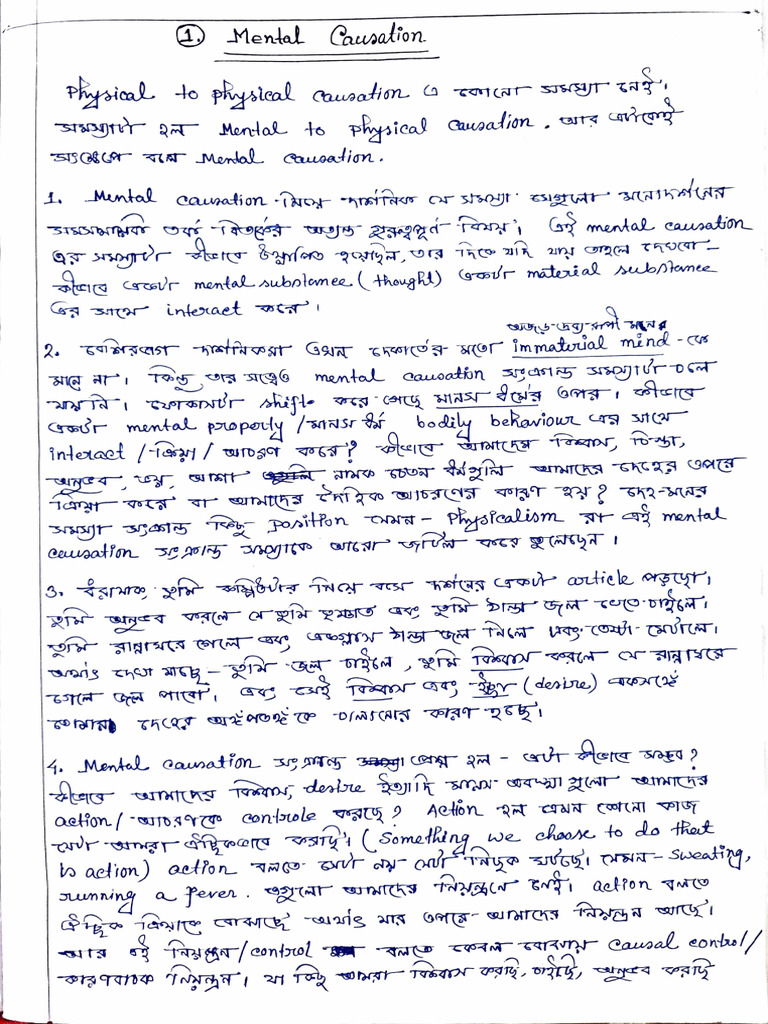 1. Mental Causation
Physical to physical causation এ কোনো সমস্যা নেই।
সমস্যাটা হল Mental to physical causation. আর এটাকেই
সংক্ষেপে বলে Mental causation.
1. Mental causation নিয়ে দার্শনিক যে সমস্যা সেগুলো মনোদর্শনের
সমসাময়িক তর্ক বিতর্কের অত্যন্ত গুরুত্বপূর্ণ বিষয়। এই mental causation
এর সমস্যাটা কীভাবে উত্থাপিত হয়েছিল, তার দিকে যদি যায় তাহলে দেখবো –
কীভাবে একটা mental substance (thought) একটা material substance
এর সাথে interact করে।
অজড়-দ্রব্য-রূপী মনের
2. বেশিরভাগ দার্শনিকরা এখন দেকার্তের মতো immaterial mind-কে
মানে না। কিন্তু তার সত্ত্বেও mental causation সংক্রান্ত সমস্যাটা চলে
যায়নি। ফোকাসটা shift করে গেছে মানস ধর্মের ওপর। কীভাবে
একটা mental property/মানস ধর্ম bodily behaviour এর সাথে
interact/ক্রিয়া/আচরণ করে? কীভাবে আমাদের বিশ্বাস, চিন্তা,
অনুভব, ভয়, আশা নামক চেতন ধর্মগুলি আমাদের দেহের ওপরে
ক্রিয়া করে বা আমাদের দৈহিক আচরণের কারণ হয়? দেহ-মনের
সমস্যা সংক্রান্ত কিছু position যেমন – Physicalism রা এই mental
causation সংক্রান্ত সমস্যাকে আরো জটিল করে তুলেছেন।
3. ধরাযাক, তুমি কম্পিউটার নিয়ে বসে দর্শনের একটা article পড়ছো।
তুমি অনুভব করলে যে তুমি তৃষ্ণার্ত এবং তুমি ঠান্ডা জল খেতে চাইলে।
তুমি রান্নাঘরে গেলে এবং একগ্লাস ঠান্ডা জল নিলে এবং তেষ্টা মেটালে।
অর্থাৎ দেখা যাচ্ছে – তুমি জল চাইলে, তুমি বিশ্বাস করলে যে রান্নাঘরে
গেলে জল পাবো। এবং সেই বিশ্বাস এবং ইচ্ছা (desire) একসঙ্গে
তোমার দেহের অঙ্গপ্রত্যঙ্গকে চালানোর কারণ হচ্ছে।
4. Mental causation সংক্রান্ত প্রশ্ন হল – এটা কীভাবে সম্ভব?
কীভাবে আমাদের বিশ্বাস, desire ইত্যাদি মানস অবস্থা গুলো আমাদের
action/আচরণকে controle করছে? Action হল এমন কোনো কাজ
যেটা আমরা ঐচ্ছিকভাবে করছি। (Something we choose to do that
is action) action বলতে সেটা নয় যেটা নিছক ঘটছে। যেমন – sweating,
running a fever. ওগুলো আমাদের নিয়ন্ত্রনে নেই। action বলতে
ঐচ্ছিক ক্রিয়াকে বোঝাচ্ছে অর্থাৎ যার ওপরে আমাদের নিয়ন্ত্রন আছে।
আর এই নিয়ন্ত্রন/control বলতে কেবল বোঝায় causal control/
কারণবাচক নিয়ন্ত্রন। যা কিছু আমরা বিশ্বাস করছি, চাইছি, অনুভব করছি